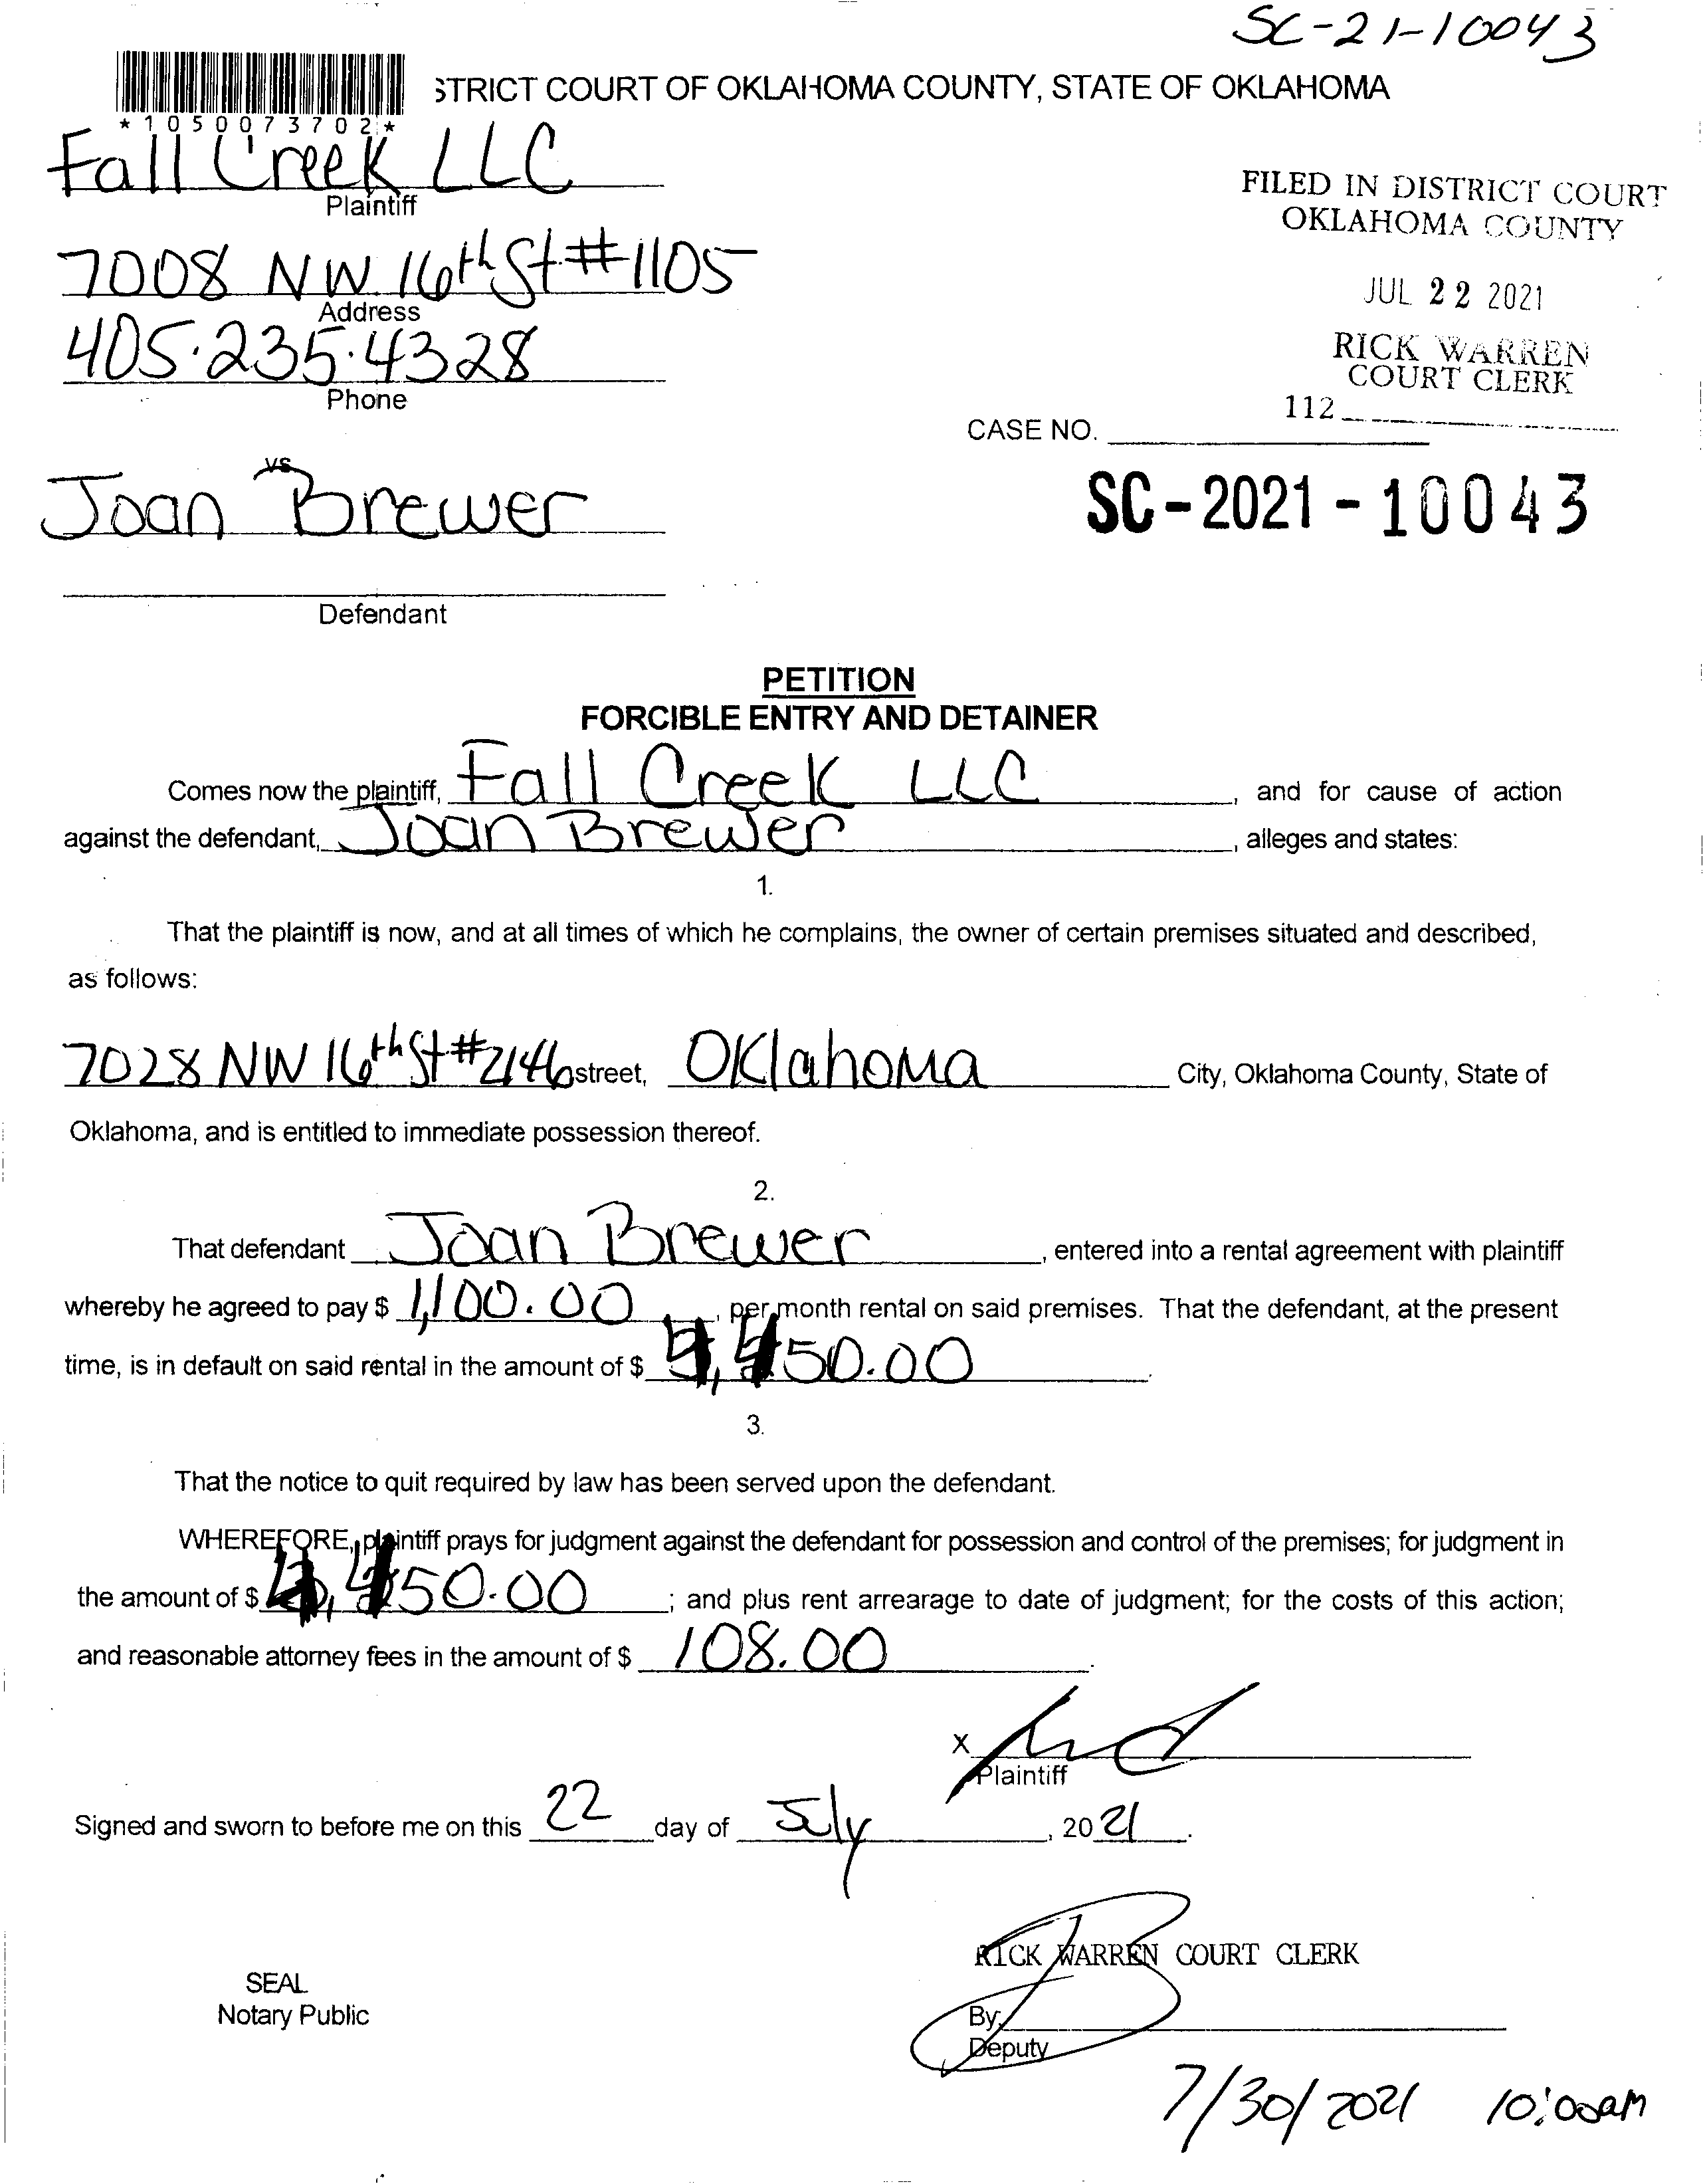 SC-21-10043
STRICT COURT OF OKLAHOMA COUNTY, STATE OF OKLAHOMA
*1050073702*
Fall Creek LLC
Plaintiff
FILED IN DISTRICT COURT
OKLAHOMA COUNTY
7008 NW 16th St #1105
Address
JUL 22 2021
405.235.4328
Phone
RICK WARREN
COURT CLERK
112
CASE NO.
vs
Joan Brewer
SC-2021-10043
Defendant
PETITION
FORCIBLE ENTRY AND DETAINER
Comes now the plaintiff, Fall Creek LLC, and for cause of action
against the defendant, Joan Brewer, alleges and states:
1.
That the plaintiff is now, and at all times of which he complains, the owner of certain premises situated and described,
as follows:
7028 NW 16th St #2146 street, Oklahoma City, Oklahoma County, State of
Oklahoma, and is entitled to immediate possession thereof.
2.
That defendant Joan Brewer, entered into a rental agreement with plaintiff
whereby he agreed to pay $ 1,100.00, per month rental on said premises. That the defendant, at the present
time, is in default on said rental in the amount of $
3.
That the notice to quit required by law has been served upon the defendant.
WHEREFORE, plaintiff prays for judgment against the defendant for possession and control of the premises; for judgment in
the amount of $ ; and plus rent arrearage to date of judgment; for the costs of this action;
and reasonable attorney fees in the amount of $ 108.00.
X
Plaintiff
Signed and sworn to before me on this 22 day of July, 2021.
RICK WARREN COURT CLERK
SEAL
Notary Public
By,
Deputy
7/30/2021 10:00am